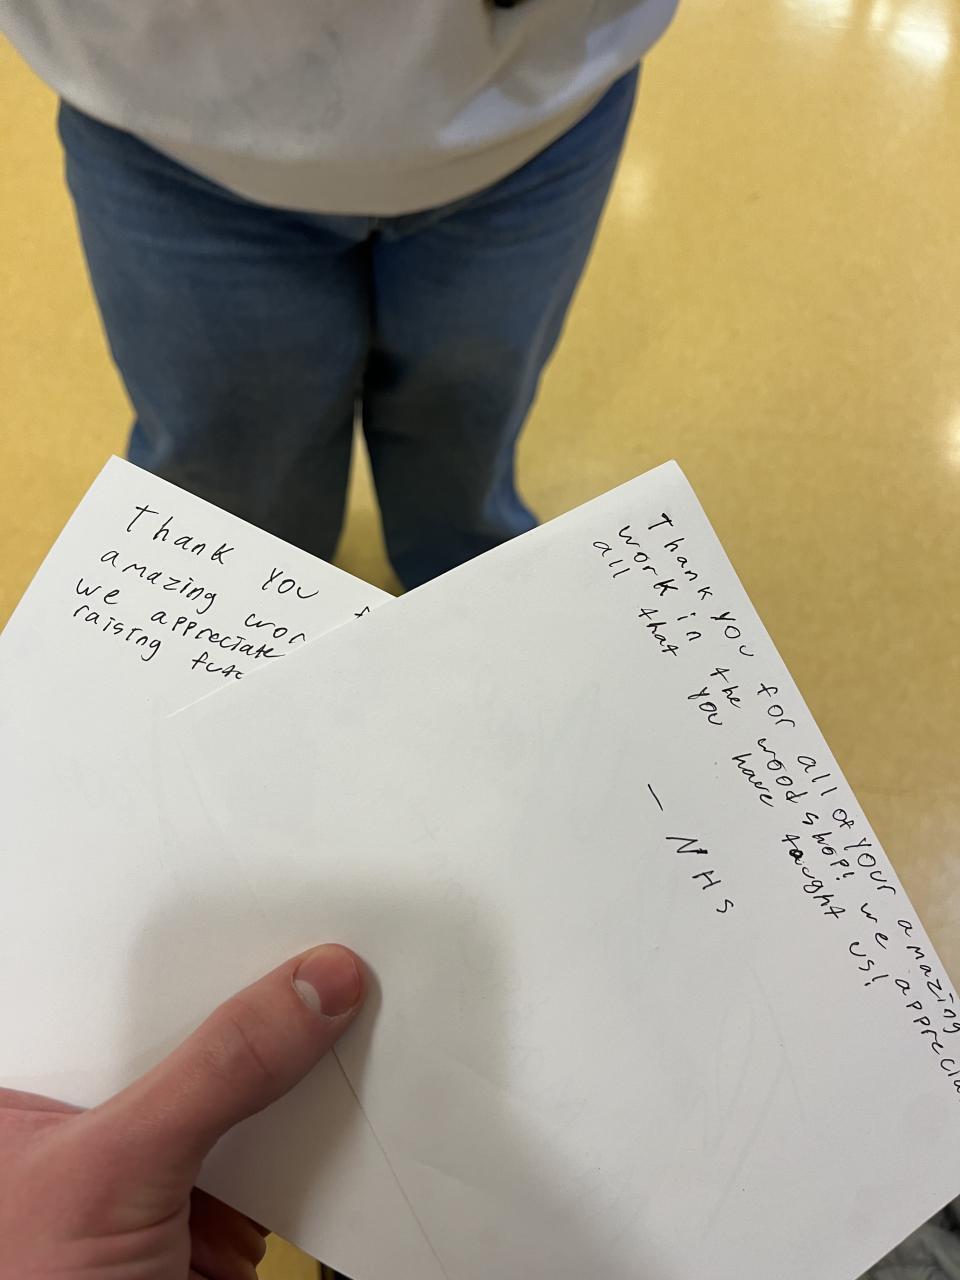 Thank you f
amazing wor
we appreciate
raising futu
Thank you for all of your amazing
work in the wood shop! we apprecia
all that you have taught us!
- NHS